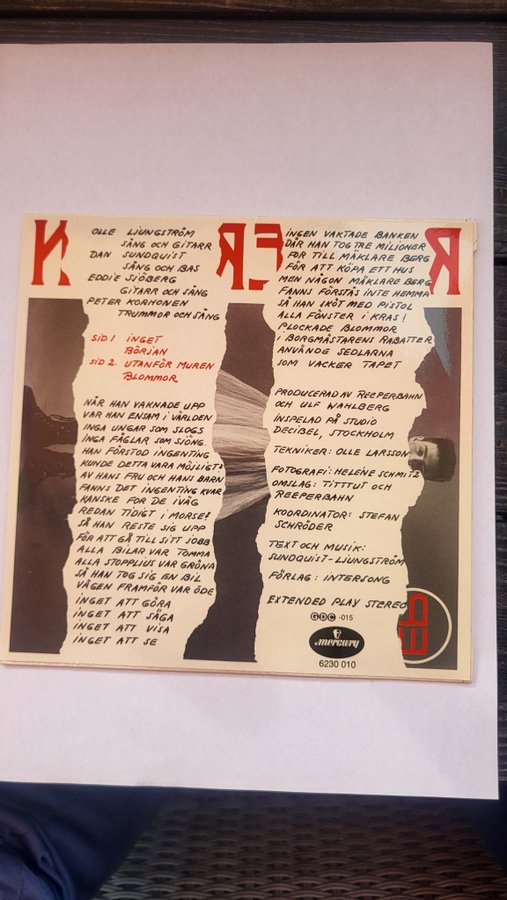 OLLE LJUNGSTRÖM
SÅNG OCH GITARR
DAN SUNDQUIST
SÅNG OCH BAS
EDDIE SJÖBERG
GITARR OCH SÅNG
PETER KORHONEN
TRUMMOR OCH SÅNG
SID 1 INGET
BÖRJAN
SID 2. UTANFÖR MUREN
BLOMMOR
NÄR HAN VAKNADE UPP
VAR HAN ENSAM I VÄRLDEN
INGA UNGAR SOM SLOGS
INGA FÅGLAR SOM SJÖNG.
HAN FÖRSTOD INGENTING
KUNDE DETTA VARA MÖJLIGT?
AV HANS FRU OCH HANS BARN
FANNS DET INGENTING KVAR
KANSKE FOR DE IVÄG
REDAN TIDIGT I MORSE?
SÅ HAN RESTE SIG UPP
FÖR ATT GÅ TILL SITT JOBB
ALLA BILAR VAR TOMMA
ALLA STOPPLJUS VAR GRÖNA
SÅ HAN TOG SIG EN BIL
VÄGEN FRAMFÖR VAR ÖDE
INGET ATT GÖRA
INGET ATT SÄGA
INGET ATT VISA
INGET ATT SE
INGEN VAKTADE BANKEN
DÄR HAN TOG TRE MILIONER
FÖR TILL MÄKLARE BERG
FÖR ATT KÖPA ETT HUS
MEN NÅGON MÄKLARE BERG
FANNS FÖRSTÅS INTE HEMMA
SÅ HAN SKÖT MED PISTOL
ALLA FÖNSTER I KRAS!
PLOCKADE BLOMMOR
I BORGMÄSTARENS RABATTER
ANVÄNDE SEDLARNA
SOM VACKER TAPET
PRODUCERAD AV REEPERBAHN
OCH ULF WAHLBERG
INSPELAD PÅ STUDIO
DECIBEL, STOCKHOLM
TEKNIKER: OLLE LARSSON
FOTOGRAFI: HELENE SCHMITZ
OMSLAG: TITTTUT OCH
REEPERBAHN
KOORDINATOR: STEFAN
SCHRÖDER
TEXT OCH MUSIK:
SUNDQUIST-LJUNGSTRÖM
FÖRLAG: INTERSONG
EXTENDED PLAY STEREO
GDC -015
mercury
6230 010